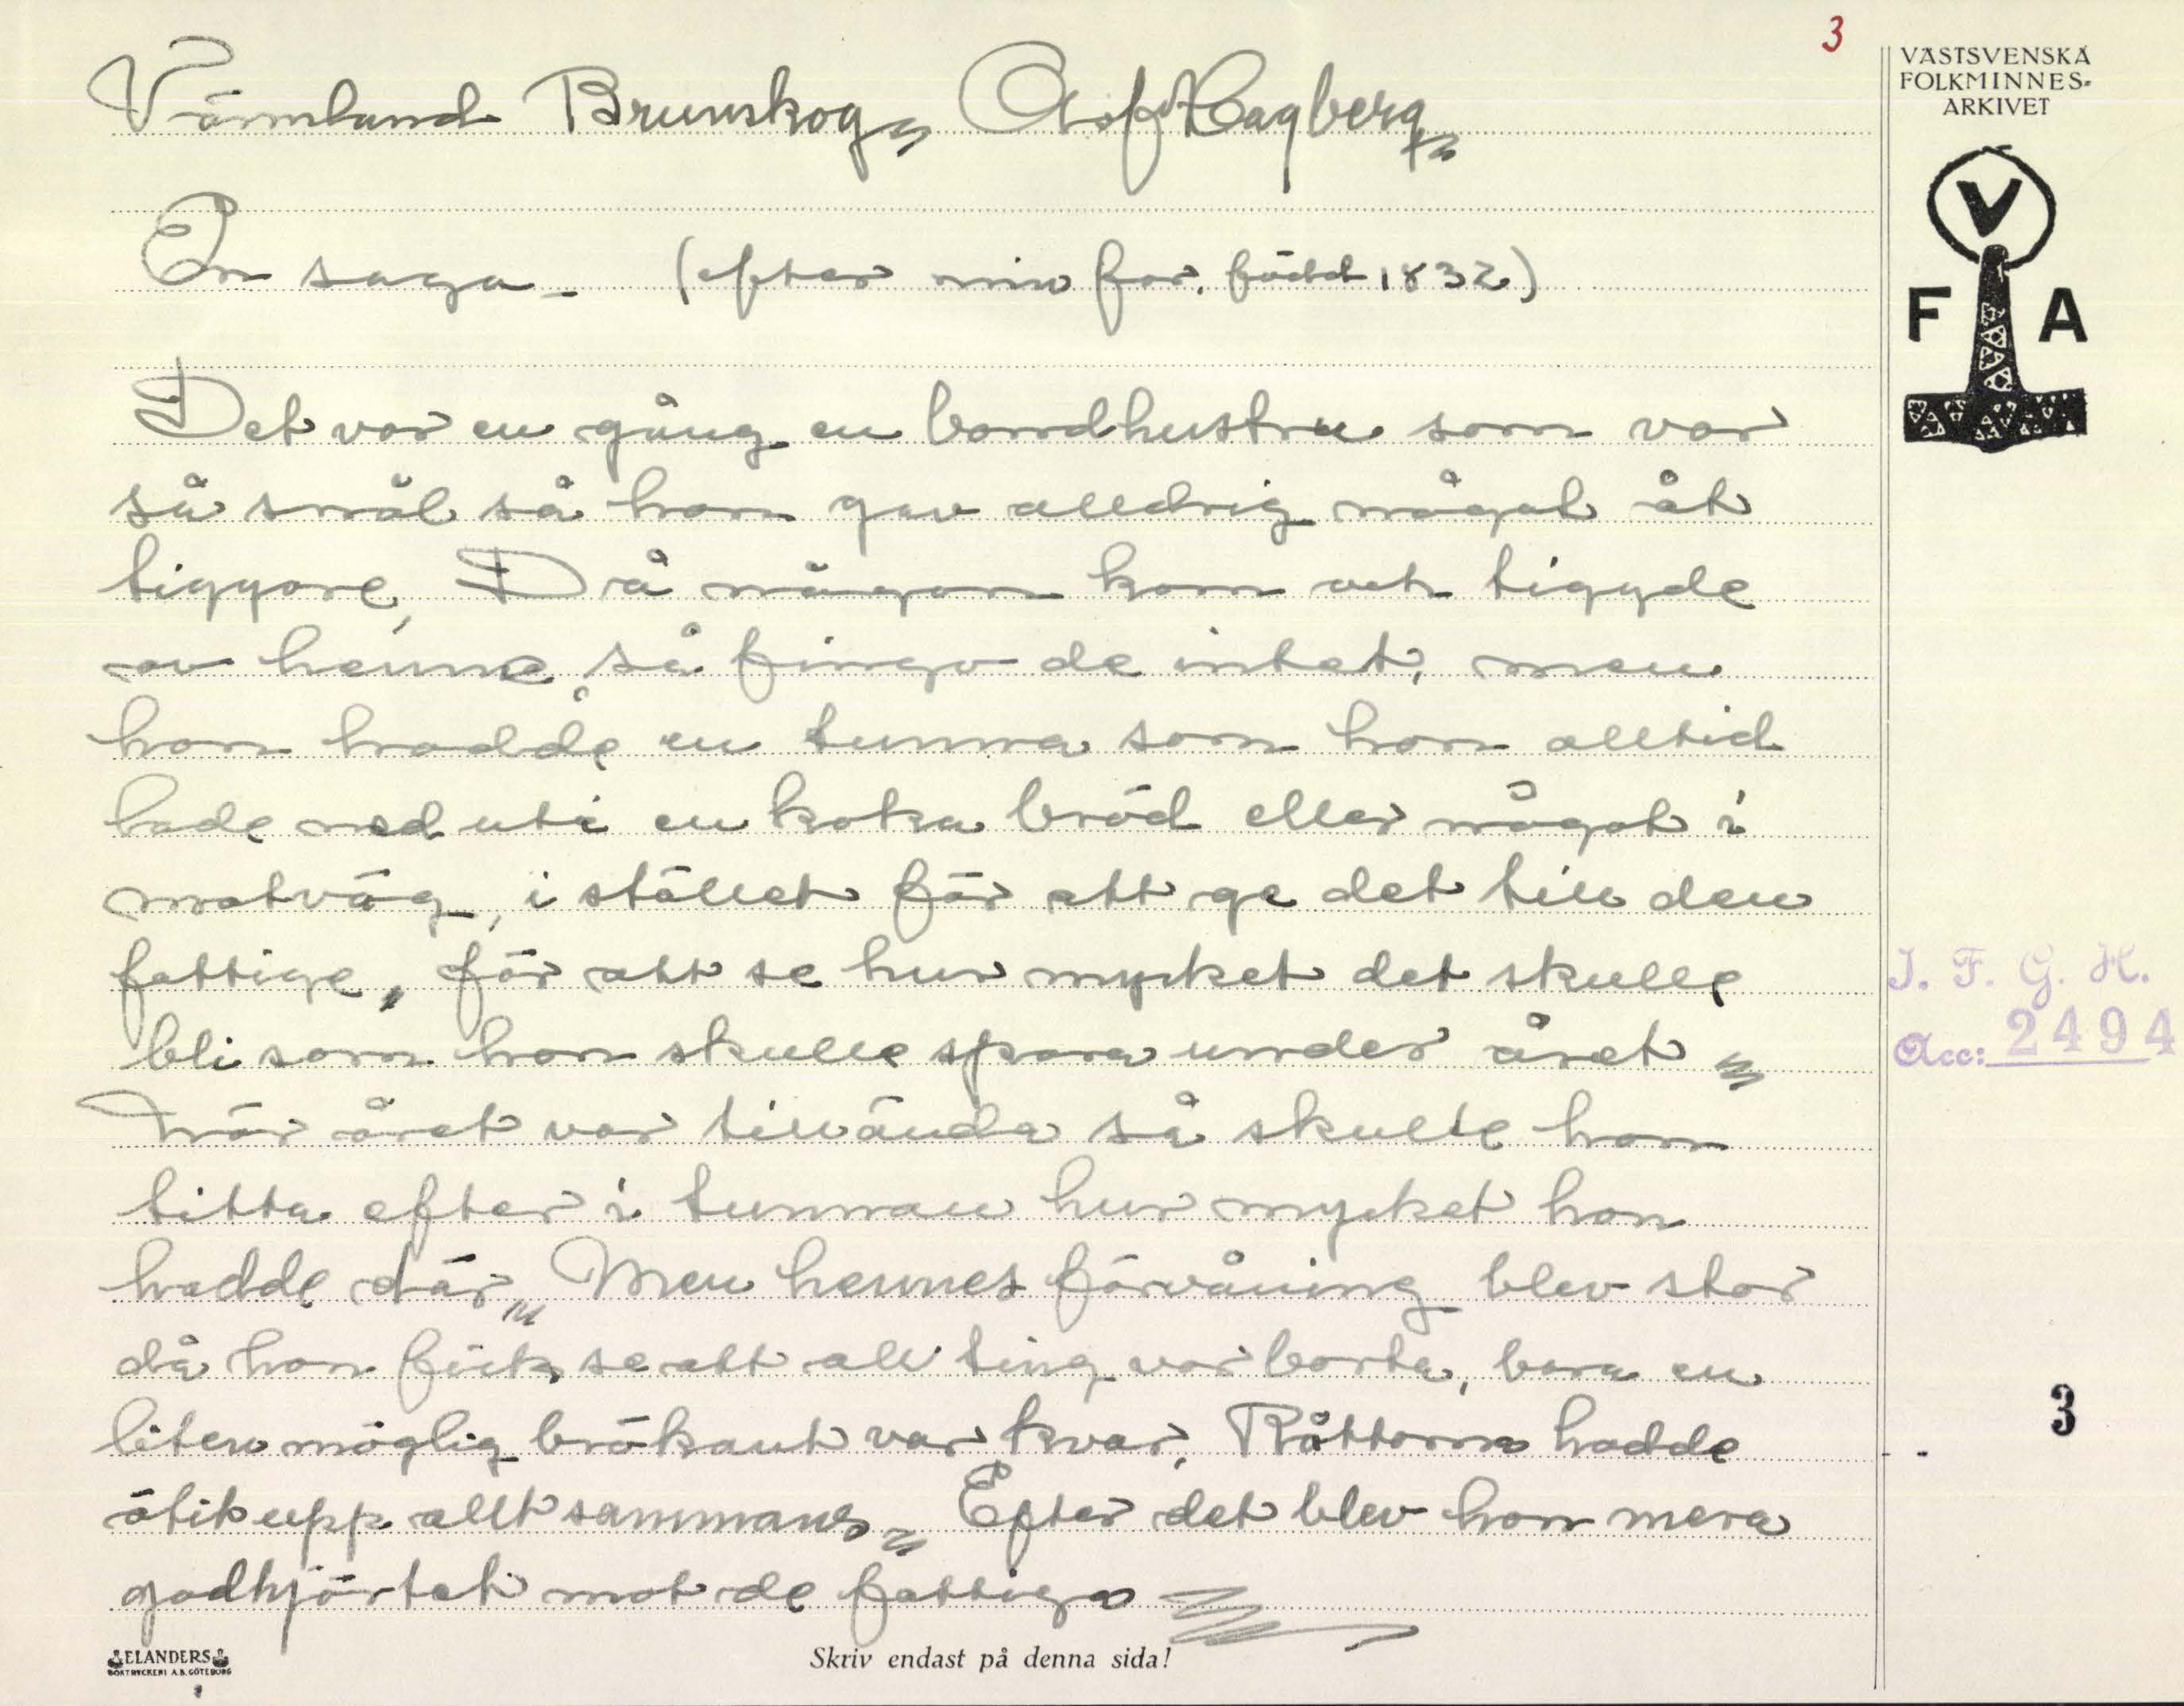 3
VÄSTSVENSKA
FOLKMINNES-
ARKIVET
V
F A
Värmland Brunskog Olof Hagberg
En saga - (efter min far. född 1832)
Det var en gång en bondhustru som var
så snål så hon gav alldrig något åt
tiggare, Då någon kom och tiggde
av henne så fingo de intet, men
hon hadde en tunna som hon alltid
lade ned uti en kaka bröd eller något i
matväg, i stället för att ge det till den
fattige, för att se hur mycket det skulle
bli som hon skulle spara under året
När året var tillända så skulle hon
titta efter i tunnan hur mycket hon
hadde där, Men hennes förvåning blev stor
då hon fick se att all ting var borta, bara en
liten möglig brökant var kvar, Råttorna hadde
ätit upp allt sammans Efter det blev hon mera
godhjärtat mot de fattiga
I. F. G. H.
Acc: 2494
3
ELANDERS
BOKTRYCKERI A.B. GÖTEBORG
Skriv endast på denna sida!